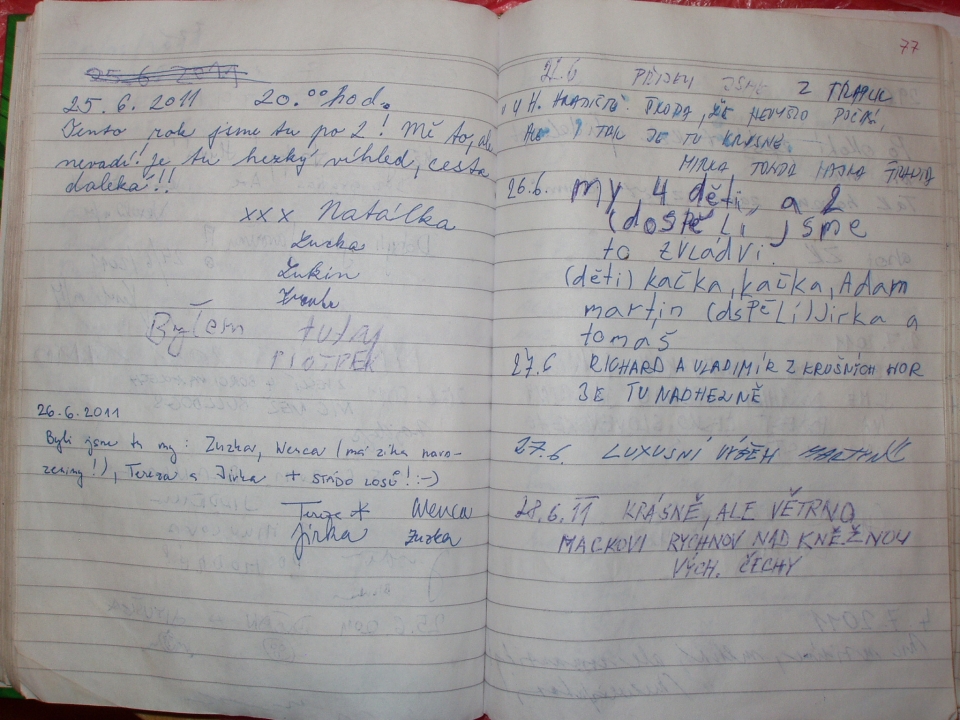 25.6 2011
25.6.2011 20.00 hod.
Tento rok jsme tu po 2! Mě to, ale
nevadí! Je tu hezký víhled, cesta
daleká!!
xxx Natálka
Zuzka
Lukin
Byłem tutaj
PIOTREK
26.6.2011
Byli jsme tu my: Zuzka, Wenca (má zítra naro-
zeniny!), Tereza a Jirka + STÁDO LOSŮ! :-)
Terez* Wenca
Jirka Zuzka
77
PŘIJELI JSME Z
U H. HRADIŠTĚ. ŠKODA, ŽE NEVYŠLO POČASÍ,
ALE I TAK JE TU KRÁSNĚ.
MIRKA TONDA
26.6. My, 4 děti, a 2
(dospěLi jsme
to zvládvi.
(děti) kačka, kačka, Adam
martin (dspěLí) Jirka a
tomaš
27.6 RICHARD A VLADIMÍR Z KRUŠNÍCH HOR
JE TU NADHERNĚ
27.6. LUXUSNÍ VÝŠĚH
28.6.11 KRÁSNĚ, ALE VĚTRNO
MACKOVI RYCHNOV NAD KNĚŽNOU
VÝCH. ČECHY